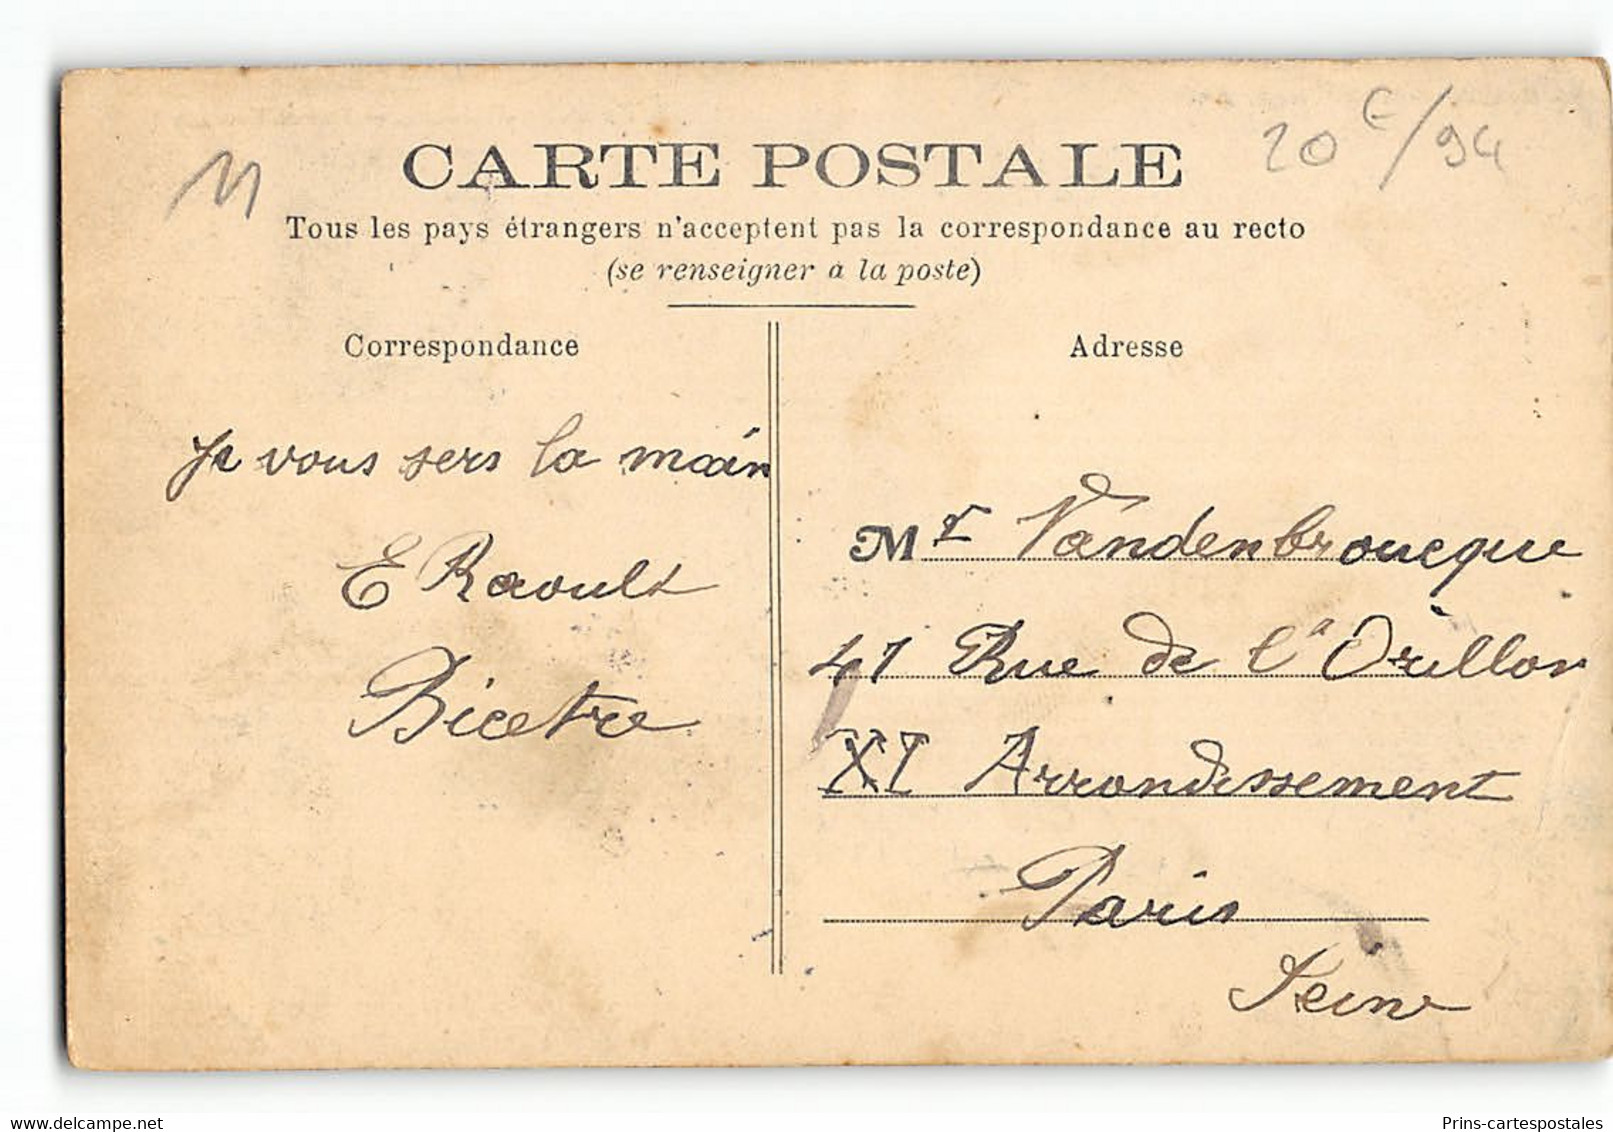 11
20€/94
CARTE POSTALE
Tous les pays étrangers n'acceptent pas la correspondance au recto
(se renseigner à la poste)
Correspondance
Je vous sers la main
E Raoult
Bicetre
Adresse
Mr Vandenbroucque
41 Rue de l'Orillon
XI Arrondissement
Paris
Seine
Prins-cartespostales